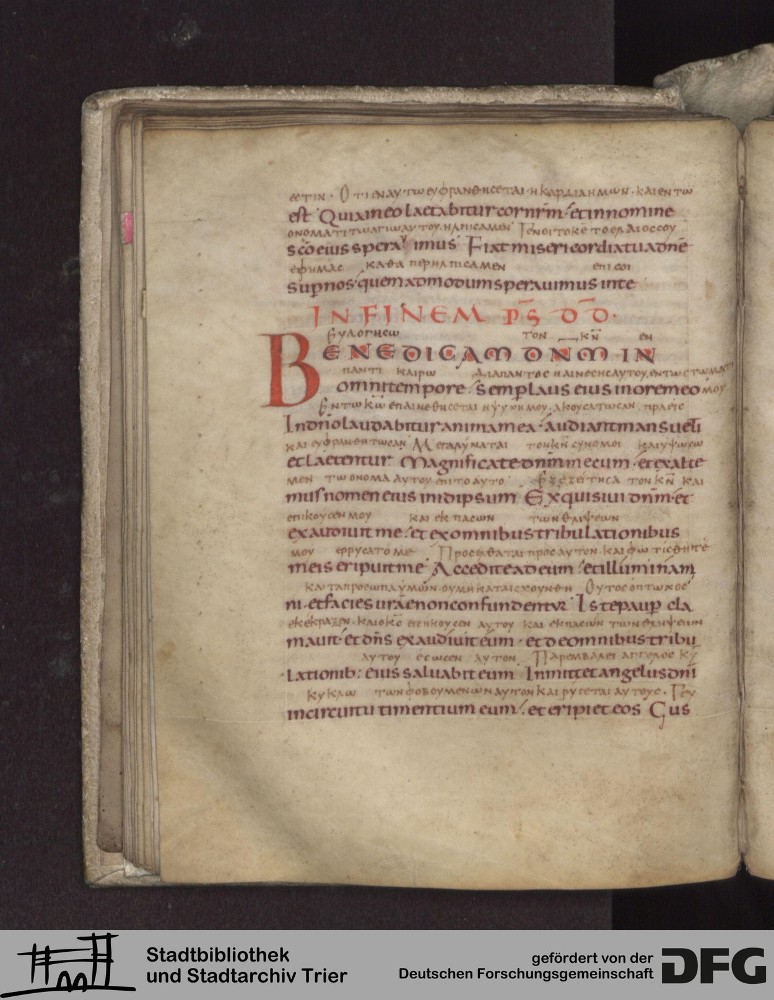 εϲτιν · Οτι εν αυτω ευφρανθηϲεται · η καρδια ημων · και εν τω
est Quia in eo laetabitur cor nr̄m · et in nomine
ονοματι τω αγιω αυτου ηλπιϲαμεν
sc̄o eius speravimus Fiat misericordia tua dn̄e
εφ ημαϲ καθαπερ ηλπιϲαμεν επι ϲοι
sup nos · quemadmodum speravimus in te
IN FINEM PS̄ DD̄ ·
Ευλογηϲω τον κ̄ν̄ εν
BENEDICAM DNM IN
παντι καιρω διαπαντοϲ η αινεϲιϲ αυτου εν τω ϲτωματι
omni tempore · semp laus eius in ore meo μου
Εν τω κ̄ω̄ επαινεθηϲεται η ψυχη μου ακουϲατωϲαν πραειϲ
In dn̄o laudabitur anima mea · audiant mansueti
και ευφρανθητωϲαν Μεγαλυναται τον κ̄ν̄ ϲυν εμοι και υψωϲω
et laetentur Magnificate dnm mecum · et exalte
μεν τω ονομα αυτου επι το αυτο Εξεζετηϲα τον κ̄ν̄ και
mus nomen eius in idipsum Exquisivi dnm · et
επικουϲεν μου και εκ παϲων των θλιψεων
exaudivit me · et ex omnibus tribulationibus
μου ερρυϲατο με Προϲελθαται προϲ αυτον · και φωτιϲθητε
meis eripuit me Accedite ad eum · et illuminam
και τα προϲωπα υμων · ου μη καταιϲχουνθη Ουτοϲ ο πτωχοϲ
ni · et facies vr̄ae non confundentur Iste paup cla
εκεκραξεν · και ο κ̄ϲ̄ ειϲηκουϲεν αυτου και εκ παϲων των θληψεων
mavit · et dn̄s exaudivit eum · et de omnibus tribu
αυτου εϲωϲεν αυτον Παρεμβαλει αγγελοϲ κ̄ῡ
lationib: eius salvabit eum Inmittet angelus dn̄i
κυκλω των φοβουμενων αυτον και ρυϲεται αυτουϲ · Γευ
in circuitu timentium eum · et eripiet eos Gus
Stadtbibliothek
und Stadtarchiv Trier
gefördert von der
Deutschen Forschungsgemeinschaft
DFG